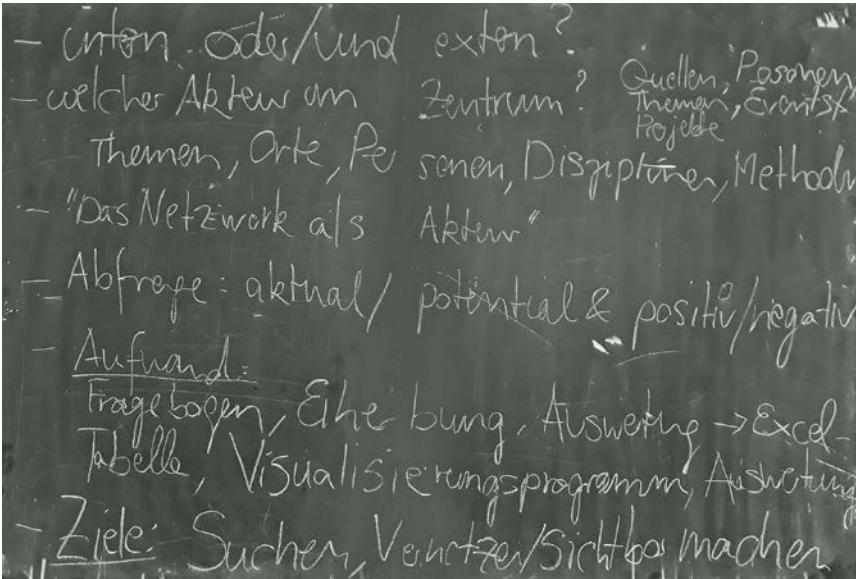 - intern oder/und extern?
- welcher Akteur im Zentrum? Quellen, Personen,
Themen, Events
Projekte
Themen, Orte, Personen, Disziplinen, Methoden
- "Das Netzwerk als Akteur"
- Abfrage: aktual/ potential & positiv/negativ
- Aufwand:
Fragebogen, Erhebung, Auswertung → Excel-
Tabelle, Visualisierungsprogramm, Auswertung
- Ziele: Suchen, Vernetzen/Sichtbar machen